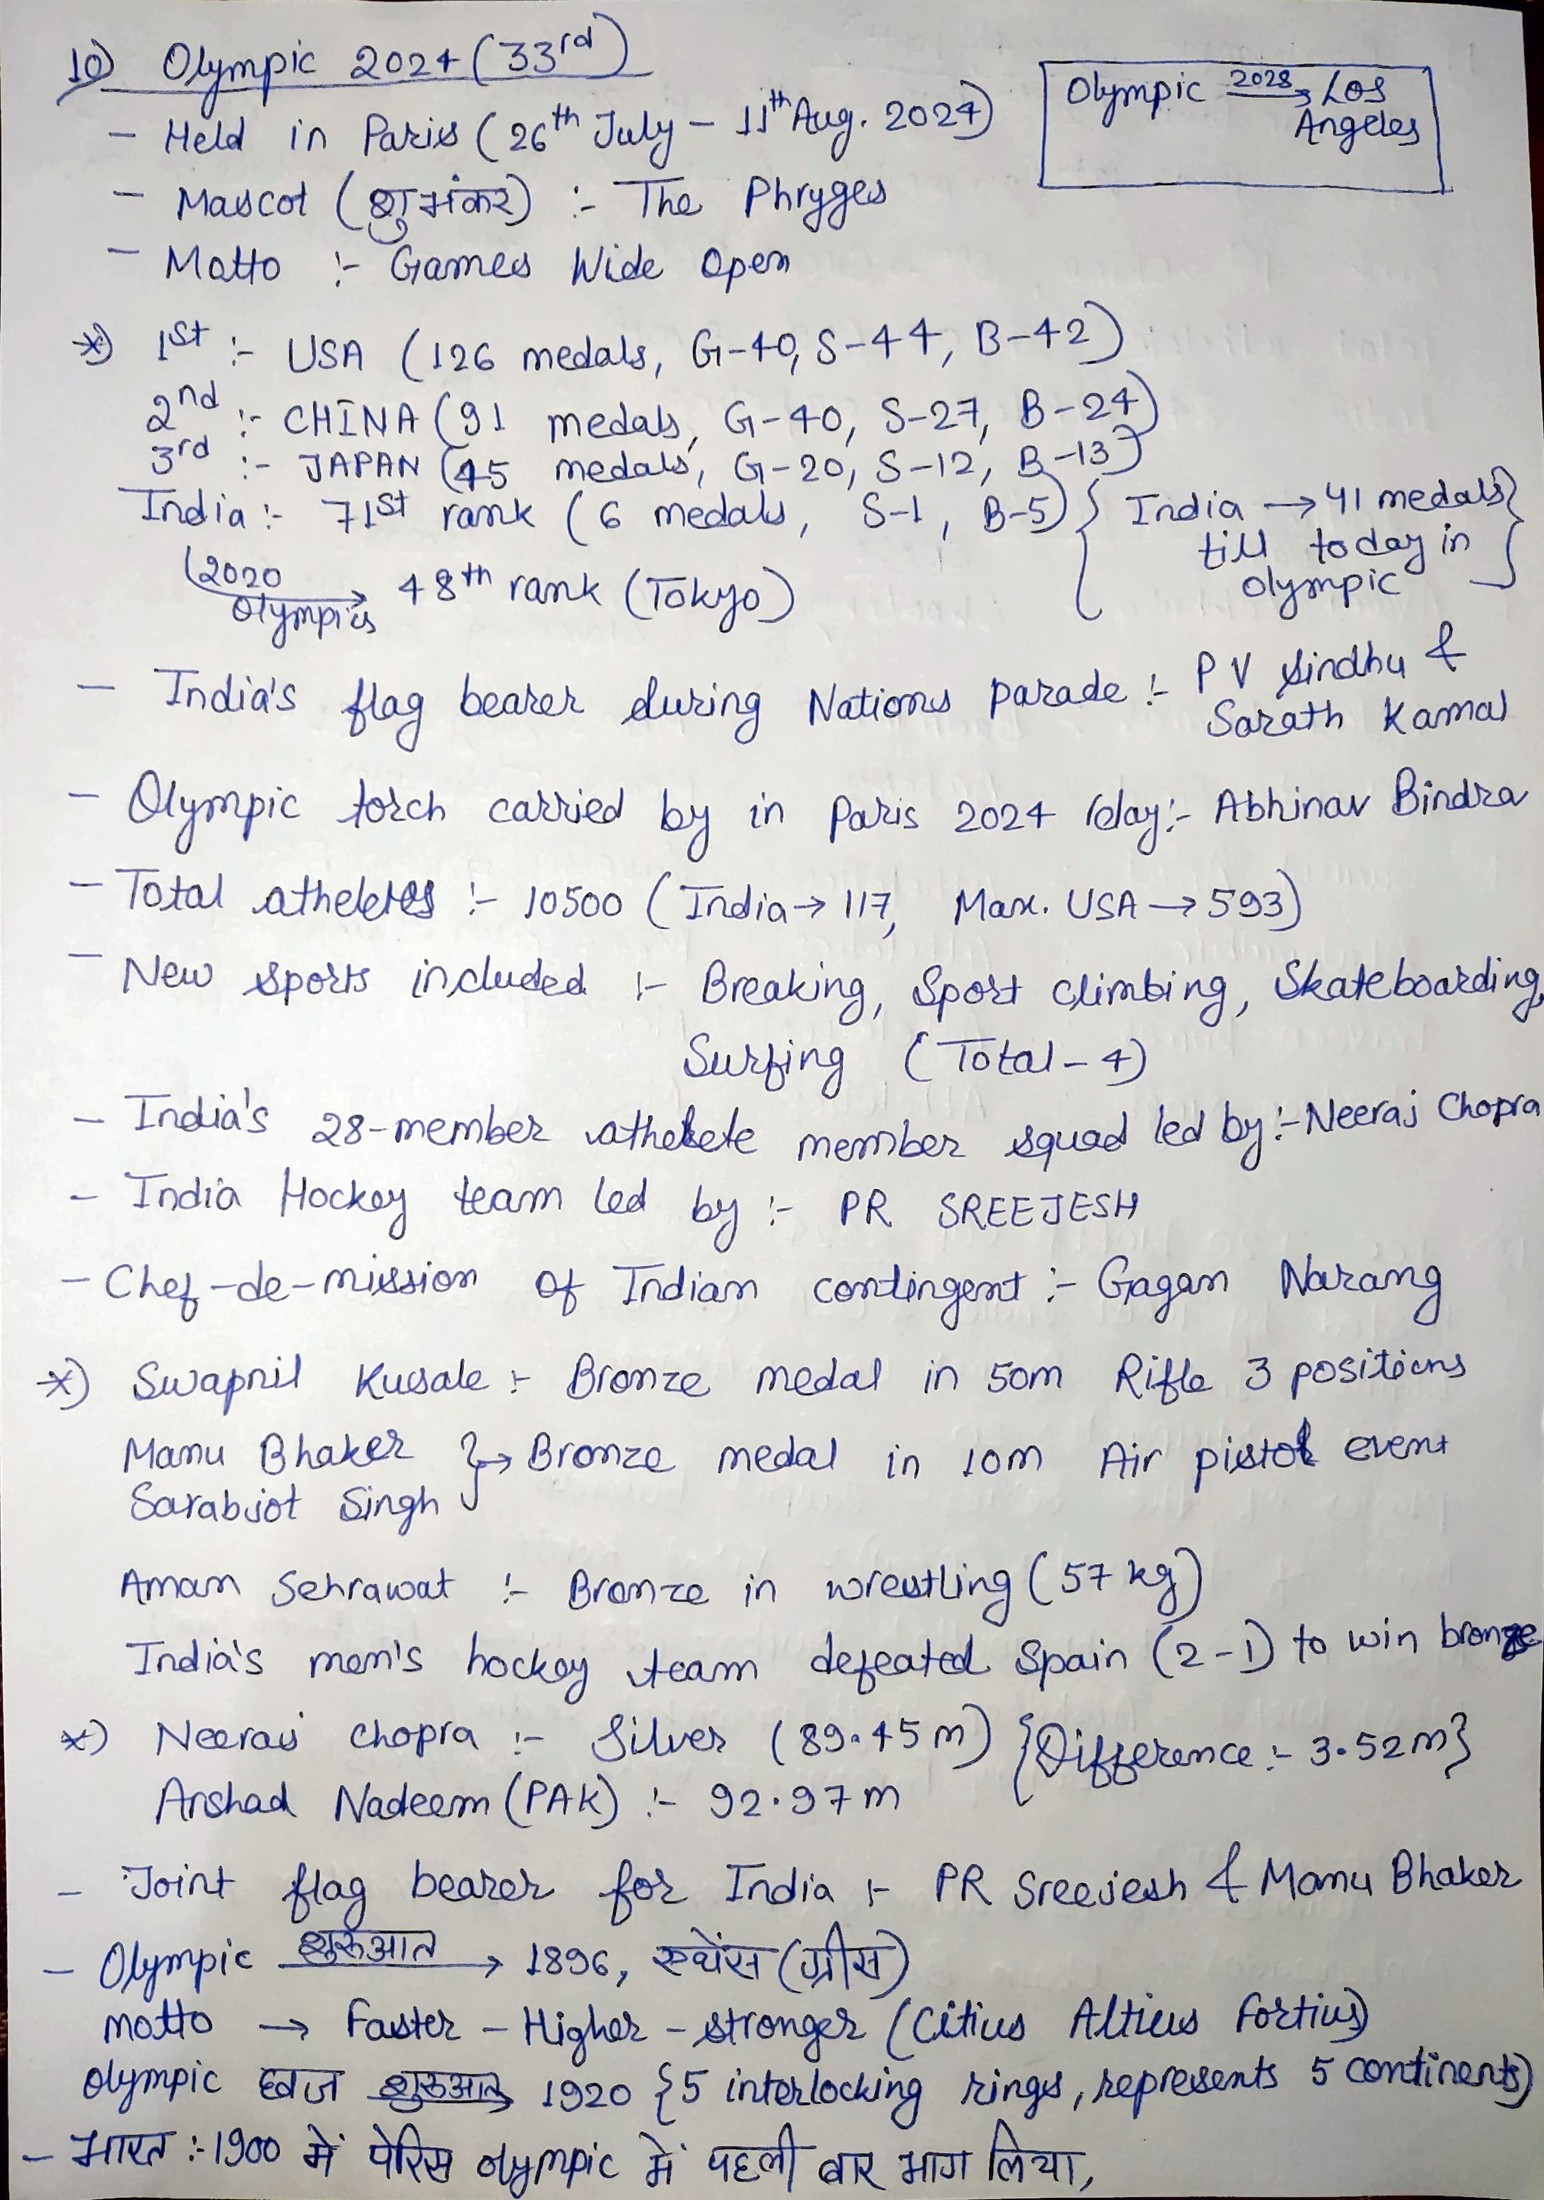 10) Olympic 2024 (33rd)
Olympic 2028→ Los
Angeles
- Held in Paris (26th July - 11th Aug. 2024)
- Mascot (शुभंकर) :- The Phryges
- Motto :- Games Wide Open
*) 1st :- USA (126 medals, G-40, S-44, B-42)
2nd :- CHINA (91 medals, G-40, S-27, B-24)
3rd :- JAPAN (45 medals, G-20, S-12, B-13)
India :- 71st rank (6 medals, S-1, B-5) { India → 41 medals
till today in
olympic }
(2020 olympics → 48th rank (Tokyo)
- India's flag bearer during Nations parade :- P V Sindhu &
Sarath Kamal
- Olympic torch carried by in Paris 2024 relay :- Abhinav Bindra
- Total atheletes :- 10500 (India → 117, Max. USA → 593)
- New sports included :- Breaking, Sport climbing, Skateboarding,
Surfing (Total - 4)
- India's 28-member athelete member squad led by :- Neeraj Chopra
- India Hockey team led by :- PR SREEJESH
- Chef-de-mission of Indian contingent :- Gagan Narang
*) Swapnil Kusale :- Bronze medal in 50m Rifle 3 positions
Manu Bhaker } → Bronze medal in 10m Air pistol event
Sarabjot Singh
Aman Sehrawat :- Bronze in wrestling (57 kg)
India's men's hockey team defeated Spain (2-1) to win bronze
*) Neeraj Chopra :- Silver (89.45m) {Difference :- 3.52m}
Arshad Nadeem (PAK) :- 92.97m
- Joint flag bearer for India :- PR Sreejesh & Manu Bhaker
- Olympic शुरुआत → 1896, एथेंस (ग्रीस)
motto → Faster - Higher - stronger (Citius Altius Fortius)
olympic ध्वज शुरुआत → 1920 {5 interlocking rings, represents 5 continents)
- भारत :- 1900 में पेरिस olympic में पहली बार भाग लिया,